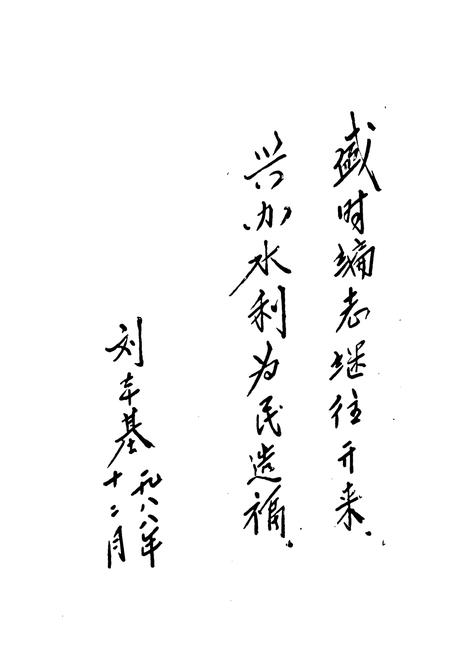 盛时编志继往开来.
兴办水利为民造福.
刘车基
一九八八年
十二月